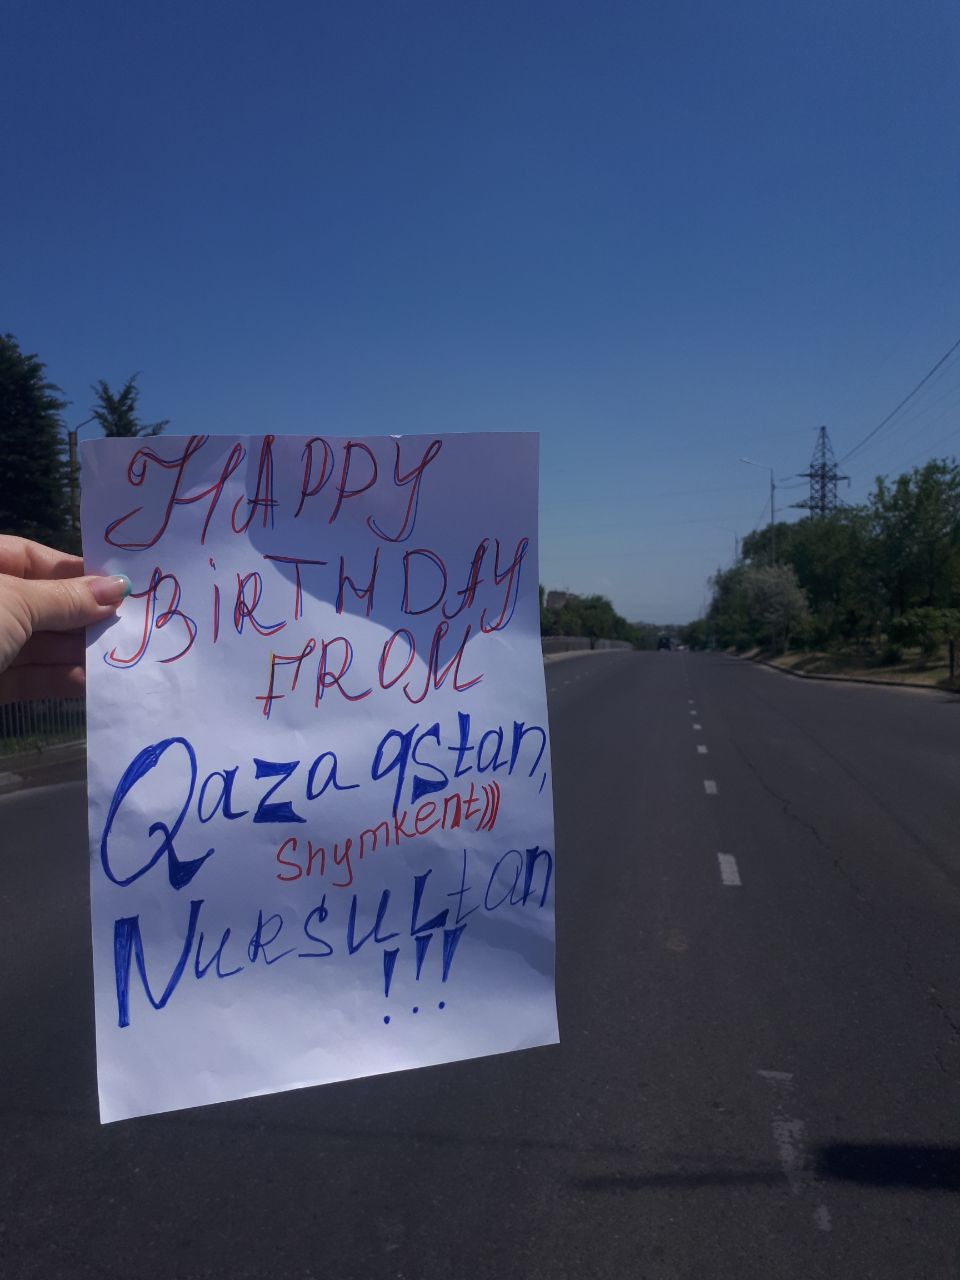 HAPPY
BiRTHDAY
FROM
Qazaqstan,
Shymkent)))
NuRSuLtan
!!!